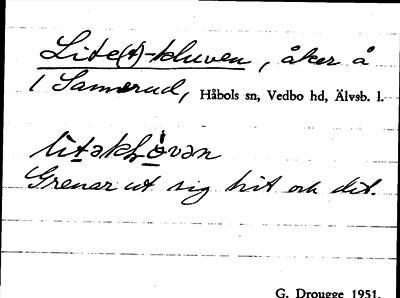 Lite(t)-kluven, åker å
1 Samerud, Håbols sn, Vedbo hd, Älvsb. l.
Grenar ut sig hit och dit.
G. Drougge 1951.